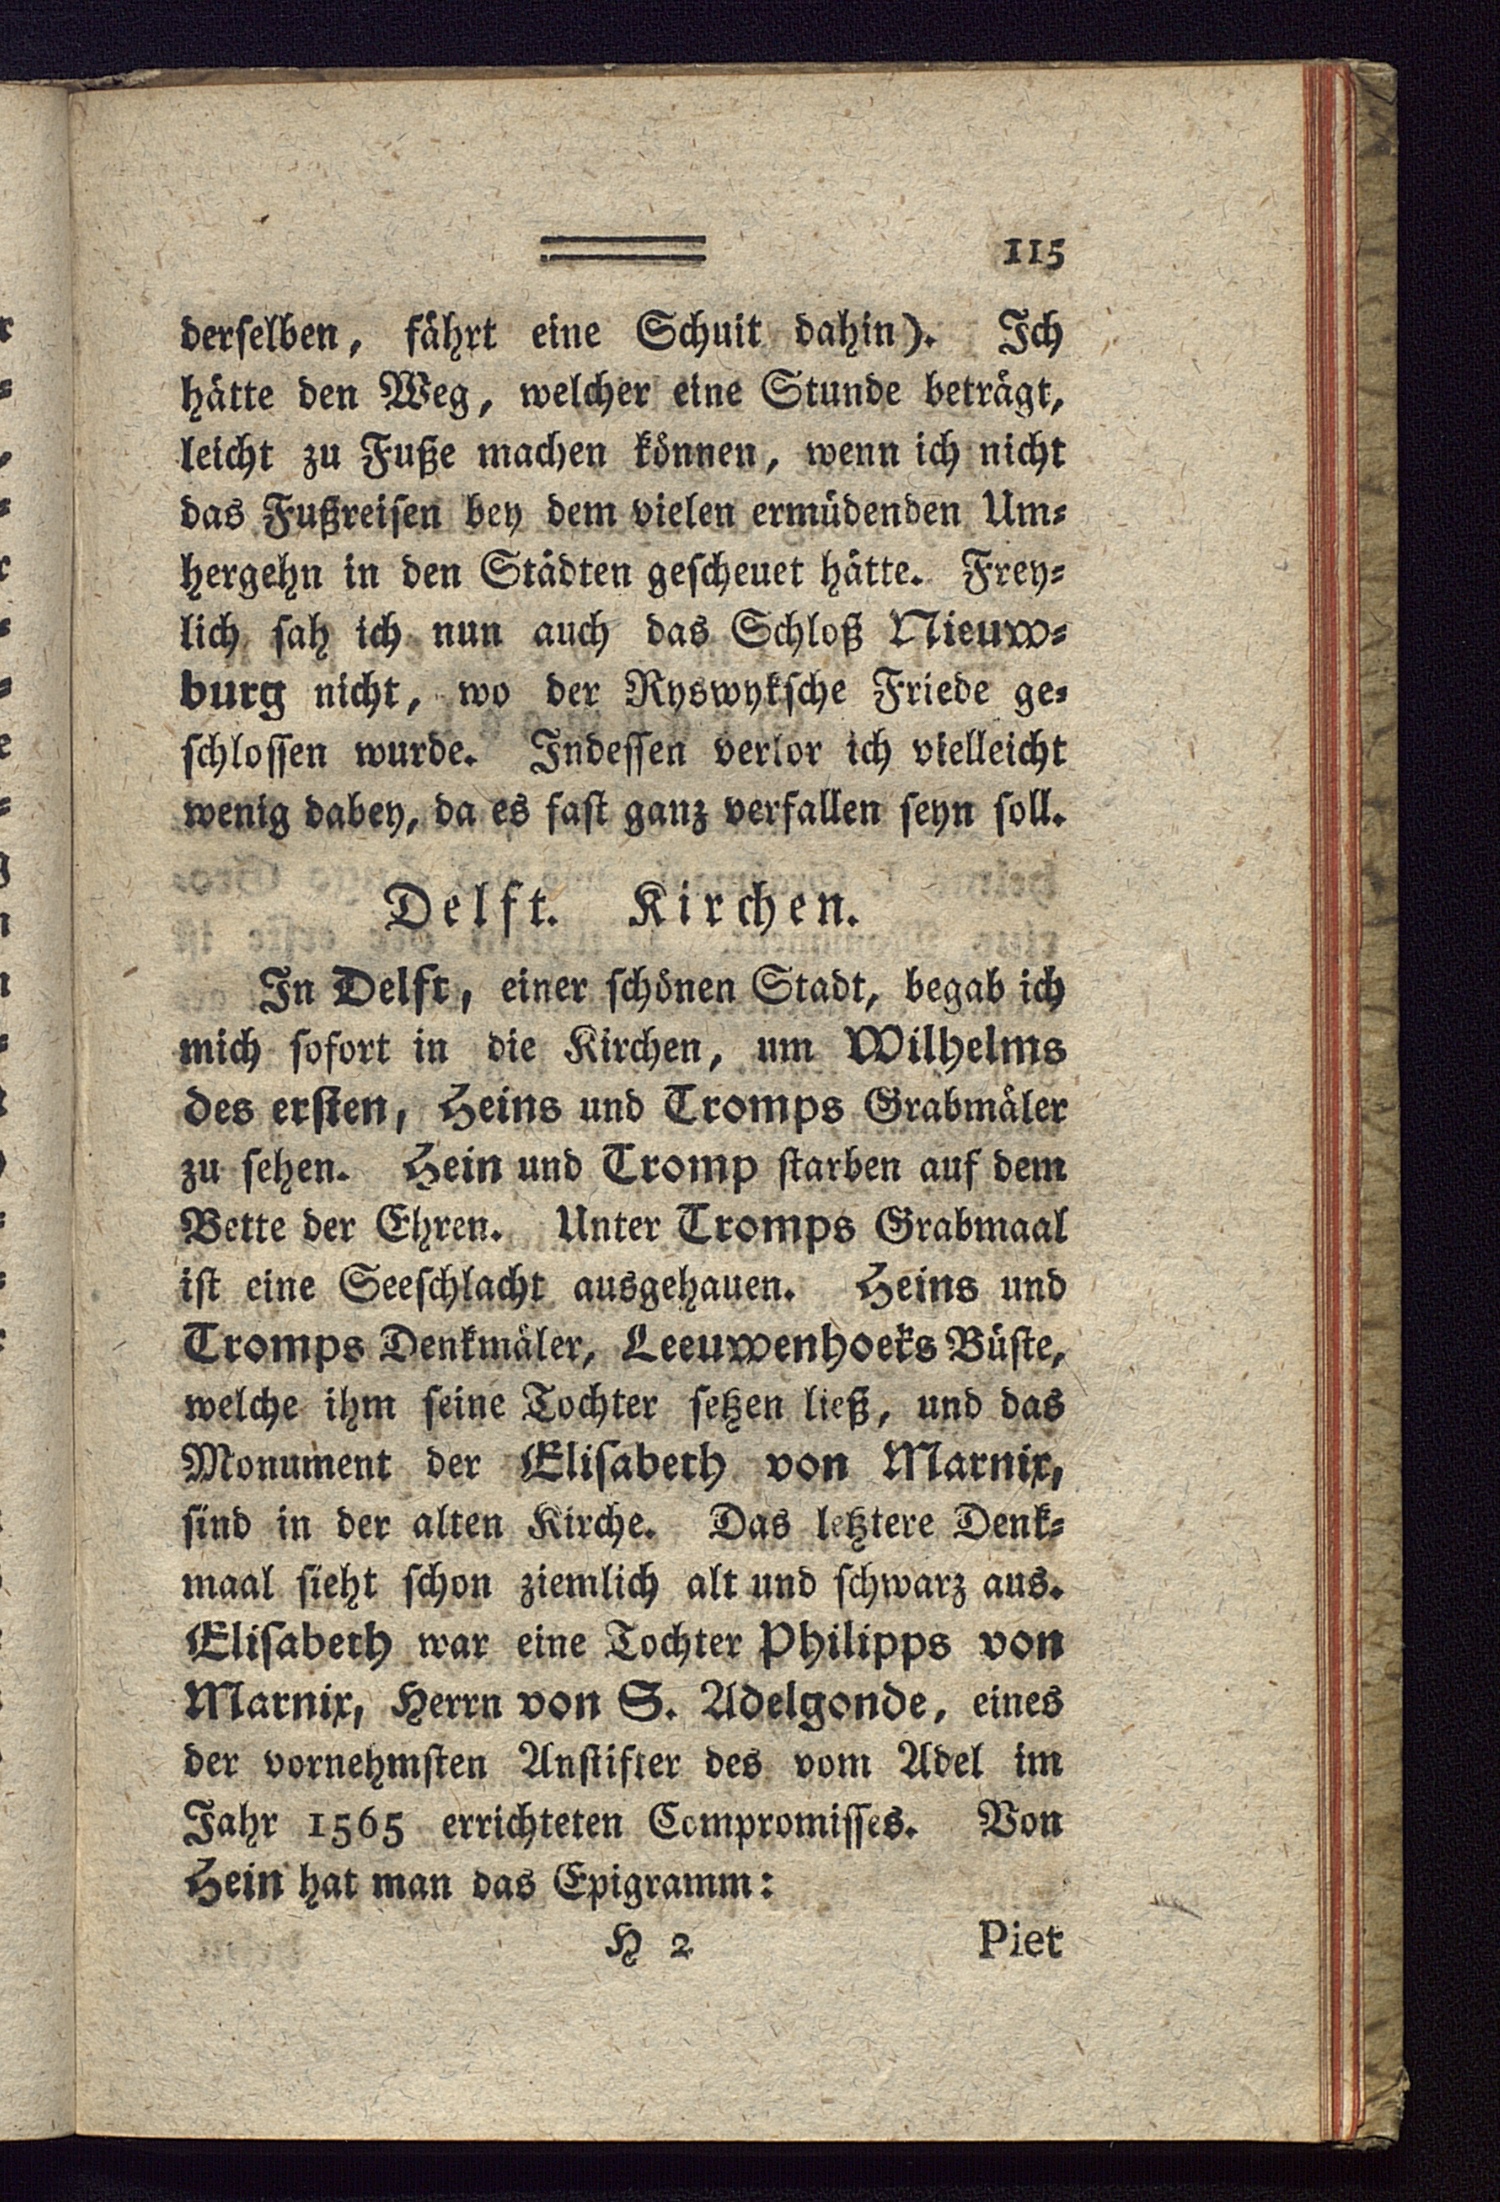 115
derselben, fährt eine Schuit dahin). Ich
hätte den Weg, welcher eine Stunde beträgt,
leicht zu Fuße machen können, wenn ich nicht
das Fußreisen bey dem vielen ermüdenden Um-
hergehn in den Städten gescheuet hätte. Frey-
lich sah ich nun auch das Schloß Nieuw-
burg nicht, wo der Ryswyksche Friede ge-
schlossen wurde. Indessen verlor ich vielleicht
wenig dabey, da es fast ganz verfallen seyn soll.
Delft. Kirchen.
In Delft, einer schönen Stadt, begab ich
mich sofort in die Kirchen, um Wilhelms
des ersten, Heins und Tromps Grabmäler
zu sehen. Hein und Tromp starben auf dem
Bette der Ehren. Unter Tromps Grabmaal
ist eine Seeschlacht ausgehauen. Heins und
Tromps Denkmäler, Leeuwenhoeks Büste,
welche ihm seine Tochter setzen ließ, und das
Monument der Elisabeth von Marnix,
sind in der alten Kirche. Das letztere Denk-
maal sieht schon ziemlich alt und schwarz aus.
Elisabeth war eine Tochter Philipps von
Marnix, Herrn von S. Adelgonde, eines
der vornehmsten Anstifter des vom Adel im
Jahr 1565 errichteten Compromisses. Von
Hein hat man das Epigramm:
H 2 Piet